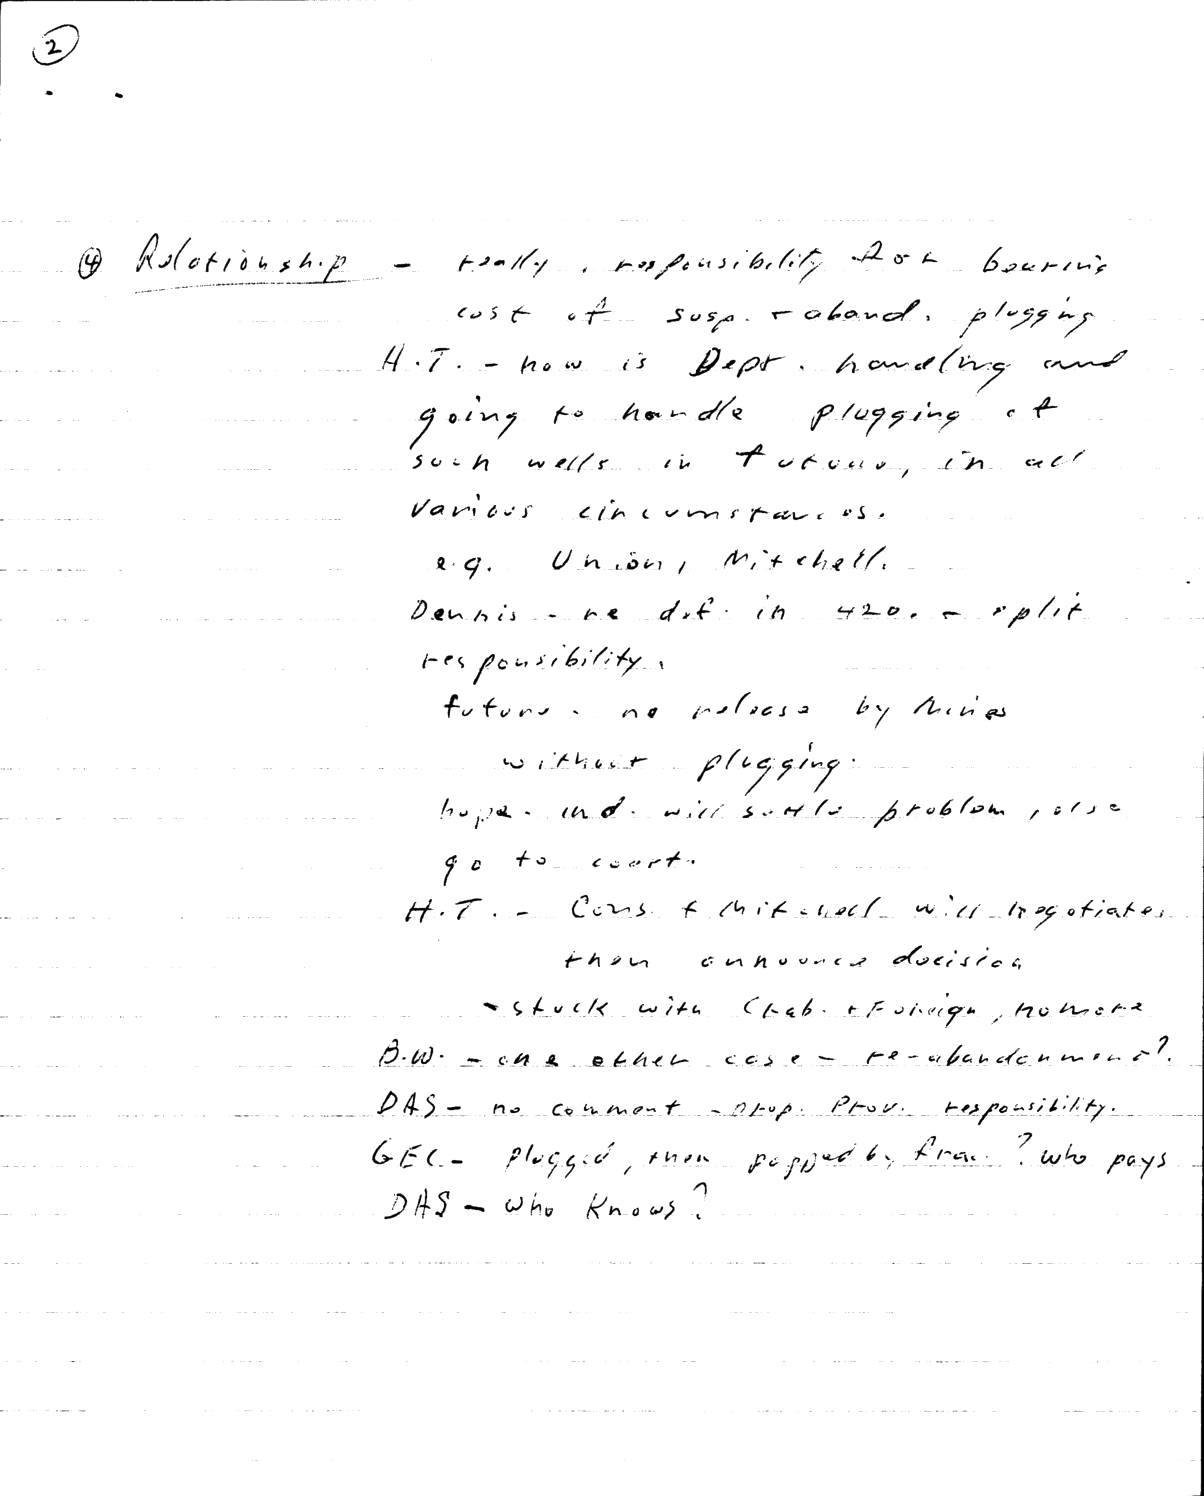 2
④ Relationship - really, responsibility for bearing
cost of susp. + aband. plugging
H.T. - how is Dept. handling and
going to handle plugging of
such wells in future, in all
various circumstances.
e.g. Union, Mitchell.
Dennis - re def. in 420. - split
responsibility.
future - no release by Mines
without plugging.
hope - ind. will settle problem, else
go to court.
H.T. - Cons. + Mitchell will negotiate,
then announce decision
- stuck with Crab. + Foreign, no more
B.W. - one other case - re-abandonment?
DAS - no comment - Prov. responsibility.
GEC - plugged, then popped by frac. ? who pays
DAS - who knows?